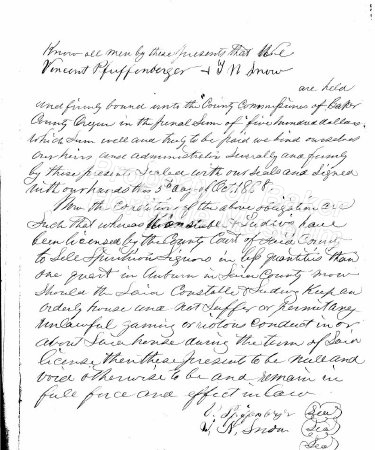 Know all men by these presents that We
Vincent Pfeiffenberger & N Snow
are held
and firmly bound unto the County Commissioners of Baker
County Oregon in the penal Sum of five hundred dollars
which Sum well and truly to be paid we bind ourselves
our heirs and administrators Severally and firmly
by these presents Sealed with our Seals and Signed
with our hands this 5th day of Oct. 1868.
Now the Conditions of the above obligation are
Such that whereas & Ludwig have
been licensed by the County Court of Said County
to Sell Spirituous Liquors in less quantities than
one quart in Auburn in Said County now
Should the Said Constable & Ludwig Keep an
orderly house and not Suffer or permit any
unlawful gaming or riotous conduct in or
about Said house during the term of Said
license then these presents to be null and
void otherwise to be and remain in
full force and effect in law
V. (Seal)
N. Snow (Seal)
(Seal)